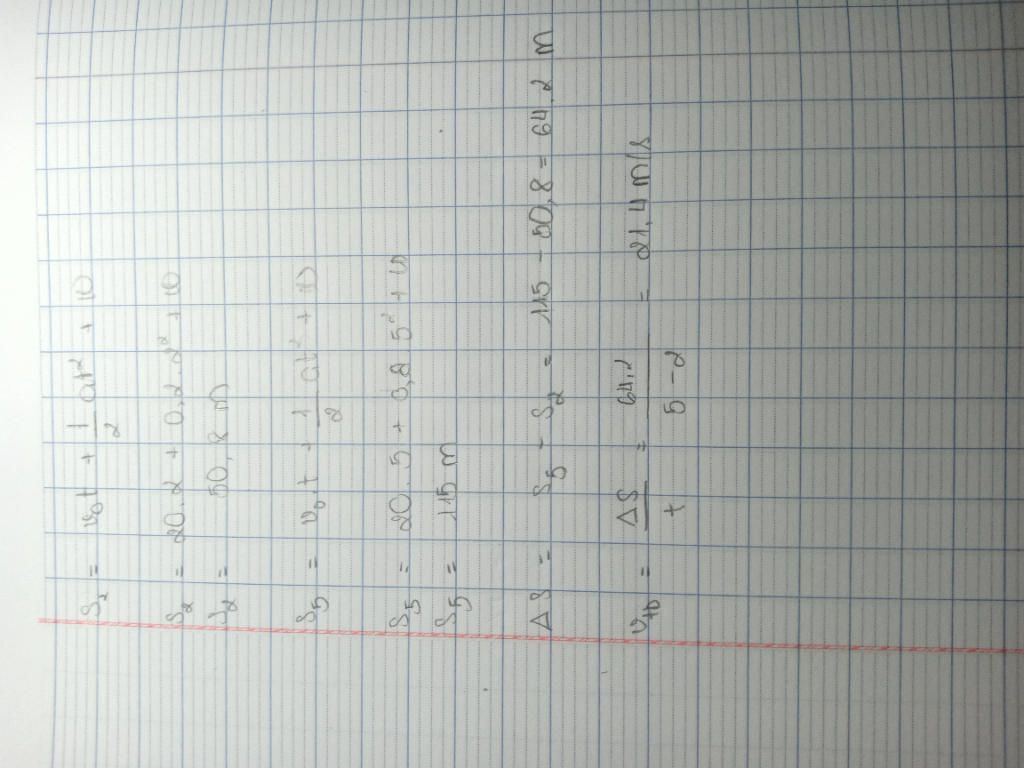 S₂ = v₀t + 1/2 at² + 10
S₂ = 20.2 + 0,2.2² + 10
S₂ = 50,8 m
S₅ = v₀.t + 1/2 at² + 10
S₅ = 20.5 + 0,2.5² + 10
S₅ = 115 m
ΔS = S₅ - S₂ = 115 - 50,8 = 64,2 m
v_tb = ΔS/t = 64,2/5-2 = 21,4 m/s